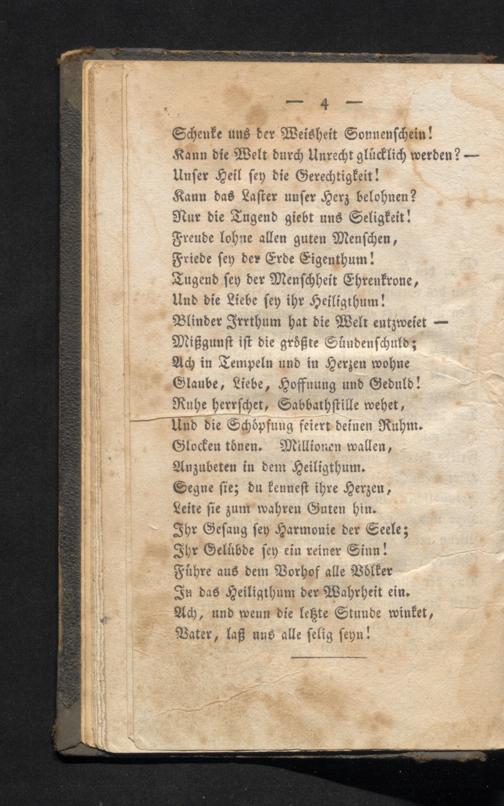 — 4 —
Schenke uns der Weisheit Sonnenschein!
Kann die Welt durch Unrecht glücklich werden? —
Unser Heil sey die Gerechtigkeit!
Kann das Laster unser Herz belohnen?
Nur die Tugend giebt uns Seligkeit!
Freude lohne allen guten Menschen,
Friede sey der Erde Eigenthum!
Tugend sey der Menschheit Ehrenkrone,
Und die Liebe sey ihr Heiligthum!
Blinder Irrthum hat die Welt entzweiet —
Mißgunst ist die größte Sündenschuld;
Ach in Tempeln und in Herzen wohne
Glaube, Liebe, Hoffnung und Geduld!
Ruhe herrschet, Sabbathstille wehet,
Und die Schöpfung feiert deinen Ruhm.
Glocken tönen. Millionen wallen,
Anzubeten in dem Heiligthum.
Segne sie; du kennest ihre Herzen,
Leite sie zum wahren Guten hin.
Ihr Gesang sey Harmonie der Seele;
Ihr Gelübde sey ein reiner Sinn!
Führe aus dem Vorhof alle Völker
In das Heiligthum der Wahrheit ein.
Ach, und wenn die letzte Stunde winket,
Vater, laß uns alle selig seyn!